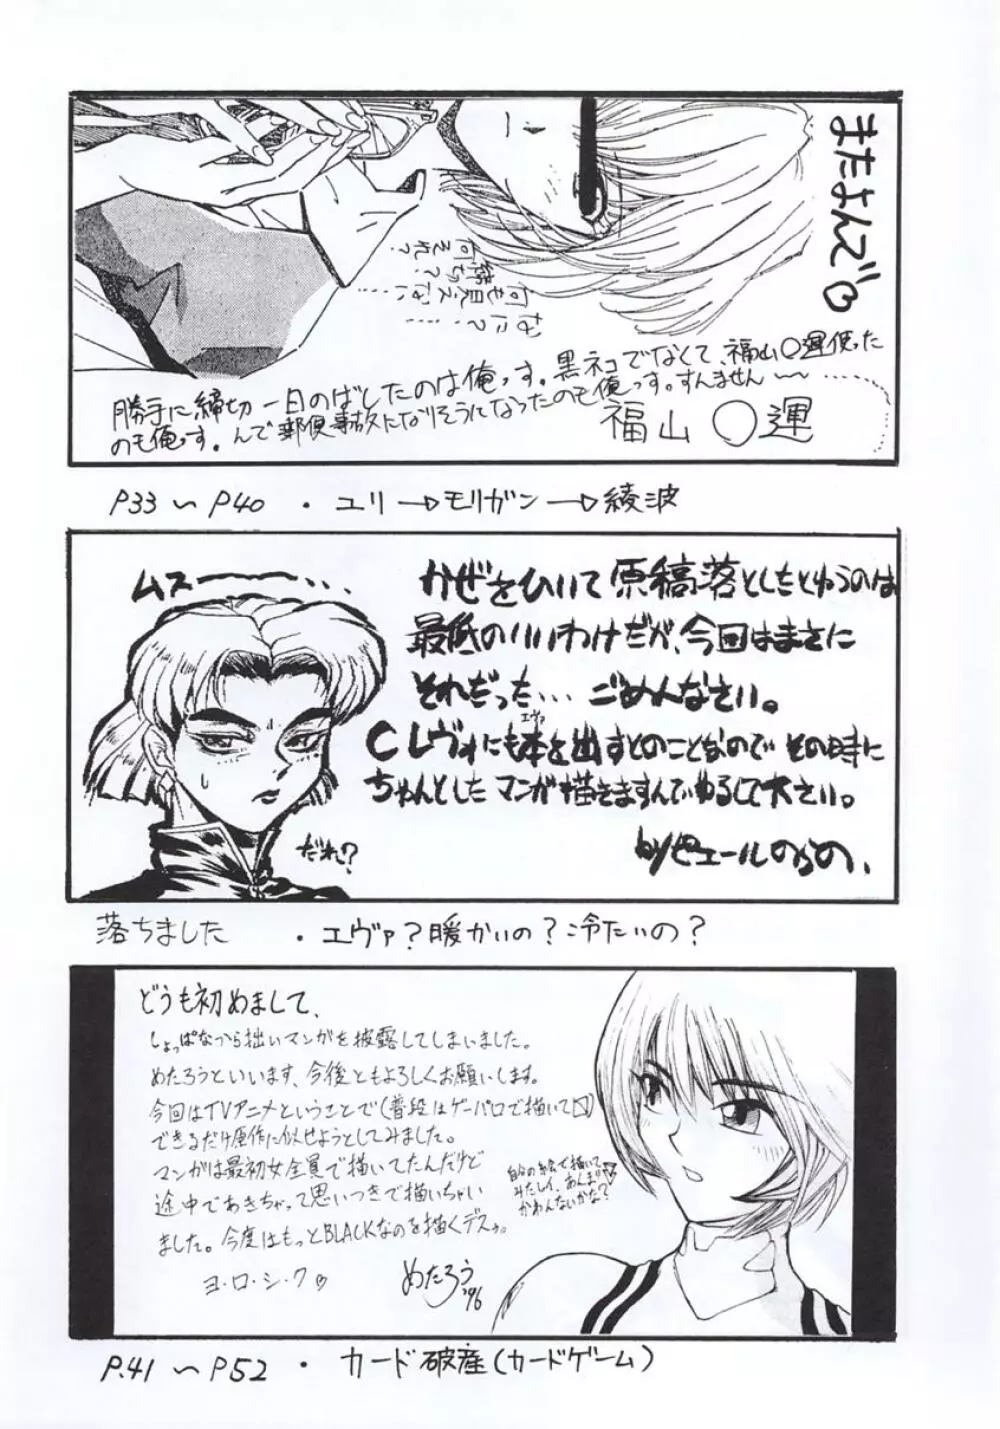 またよんで♡
何それ?
締切?
何も見えない……
なに?……
勝手に締切一日のばしたのは俺っす。黒ネコでなくて、福山○運使った
のも俺っす。んで郵便事故になりそうになったのも俺っす。すんません〜〜……
福山○運
P33 〜 P40 ・ ユリ→モリガン→綾波
ムスーー・・
だれ?
かぜをひいて原稿落としたとゆうのは
最低のいいわけだが、今回はまさに
それだった… ごめんなさい。
Cレヴォにも本を出すとのことなので その時に
エヴァ
ちゃんとしたマンガ描きますんでゆるして下さい。
落ちました ・エヴァ?暖かいの?冷たいの?
どうも初めまして、
しょっぱなから拙いマンガを披露してしまいました。
めたろうといいます、今後ともよろしくお願いします。
今回はTVアニメということで(普段はゲーパロで描いて
できるだけ原作に似せようとしてみました。
マンガは最初女全員で描いてたんだけど
途中であきちゃって思いつきで描いちゃい
ました。今度はもっとBLACKなのを描くデスゥ。
ヨ・ロ・シ・ク♡
めたろう '96
自分の絵で描いて
みたレイ、あんまり
かわんないかな?
P.41 〜 P52 ・ カード破産(カードゲーム)